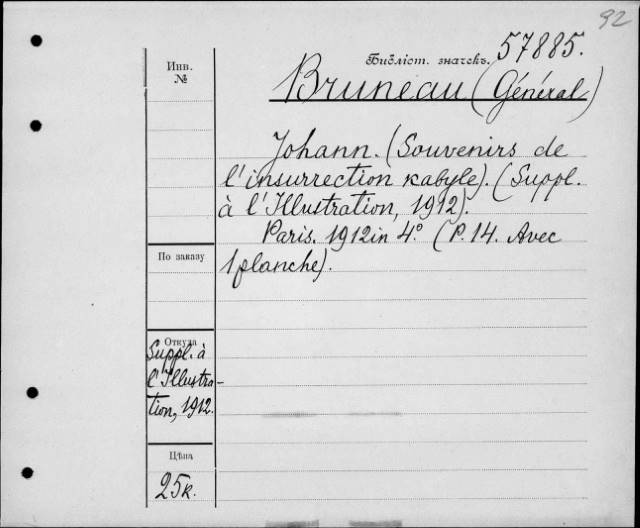 92
Библіот. значекъ. 57885.
Инв.
№
Bruneau (Général)
Johann. (Souvenirs de
l'insurrection kabyle). (Suppl.
à l'Illustration, 1912).
Paris. 1912 in 4° (P. 14. Avec
1 planche).
По заказу
Откуда
Suppl. à
l'Illustra-
tion, 1912.
Цѣна
25к.